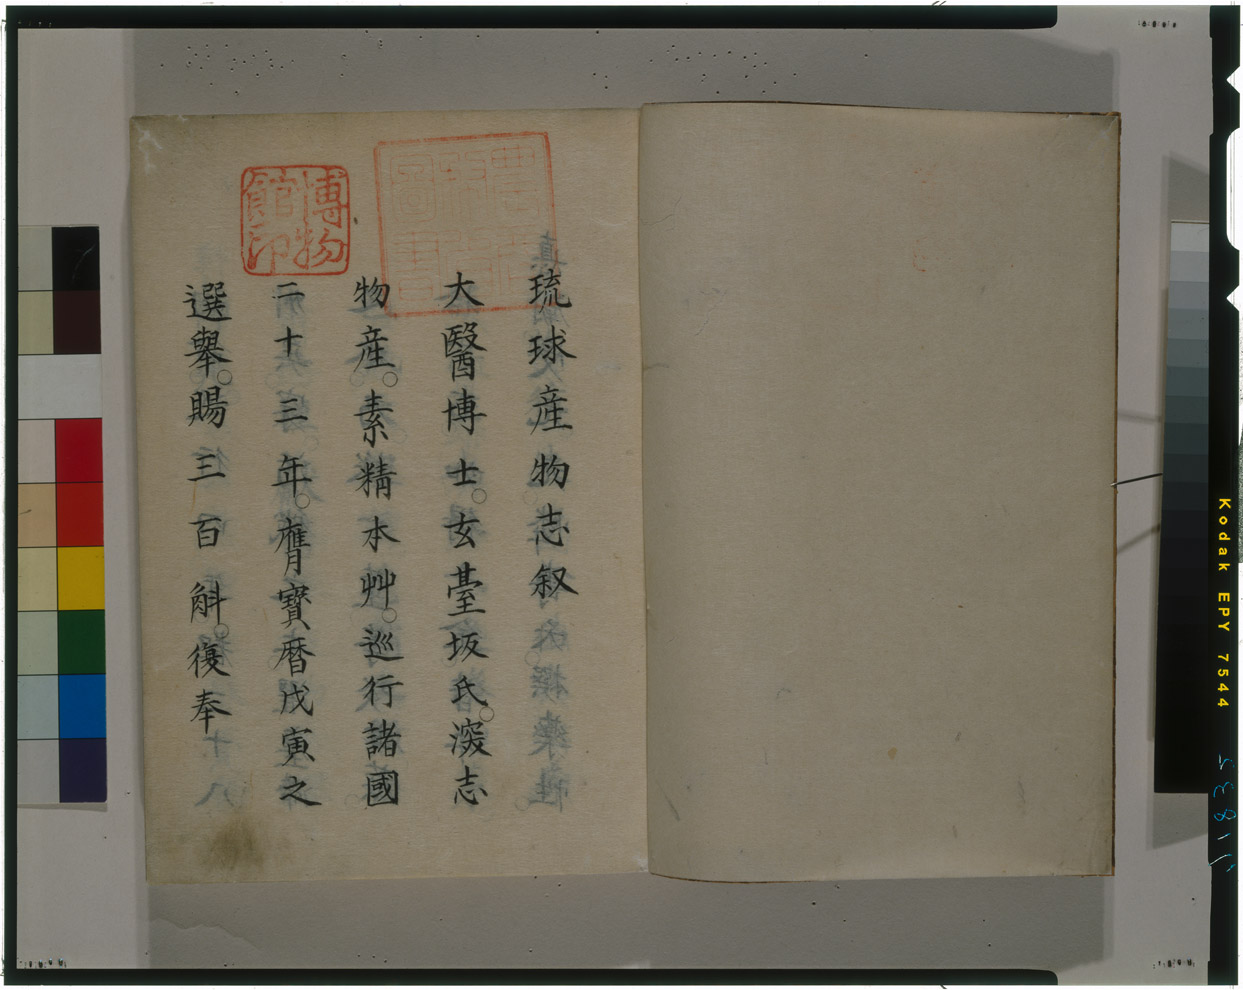 琉球産物志叙
大醫博士。玄臺坂氏。深志
物産。素精本艸。巡行諸國
二十三年。膺寳暦戊寅之
選擧。賜三百斛。復奉
博物
館印
Kodak EPY 7544